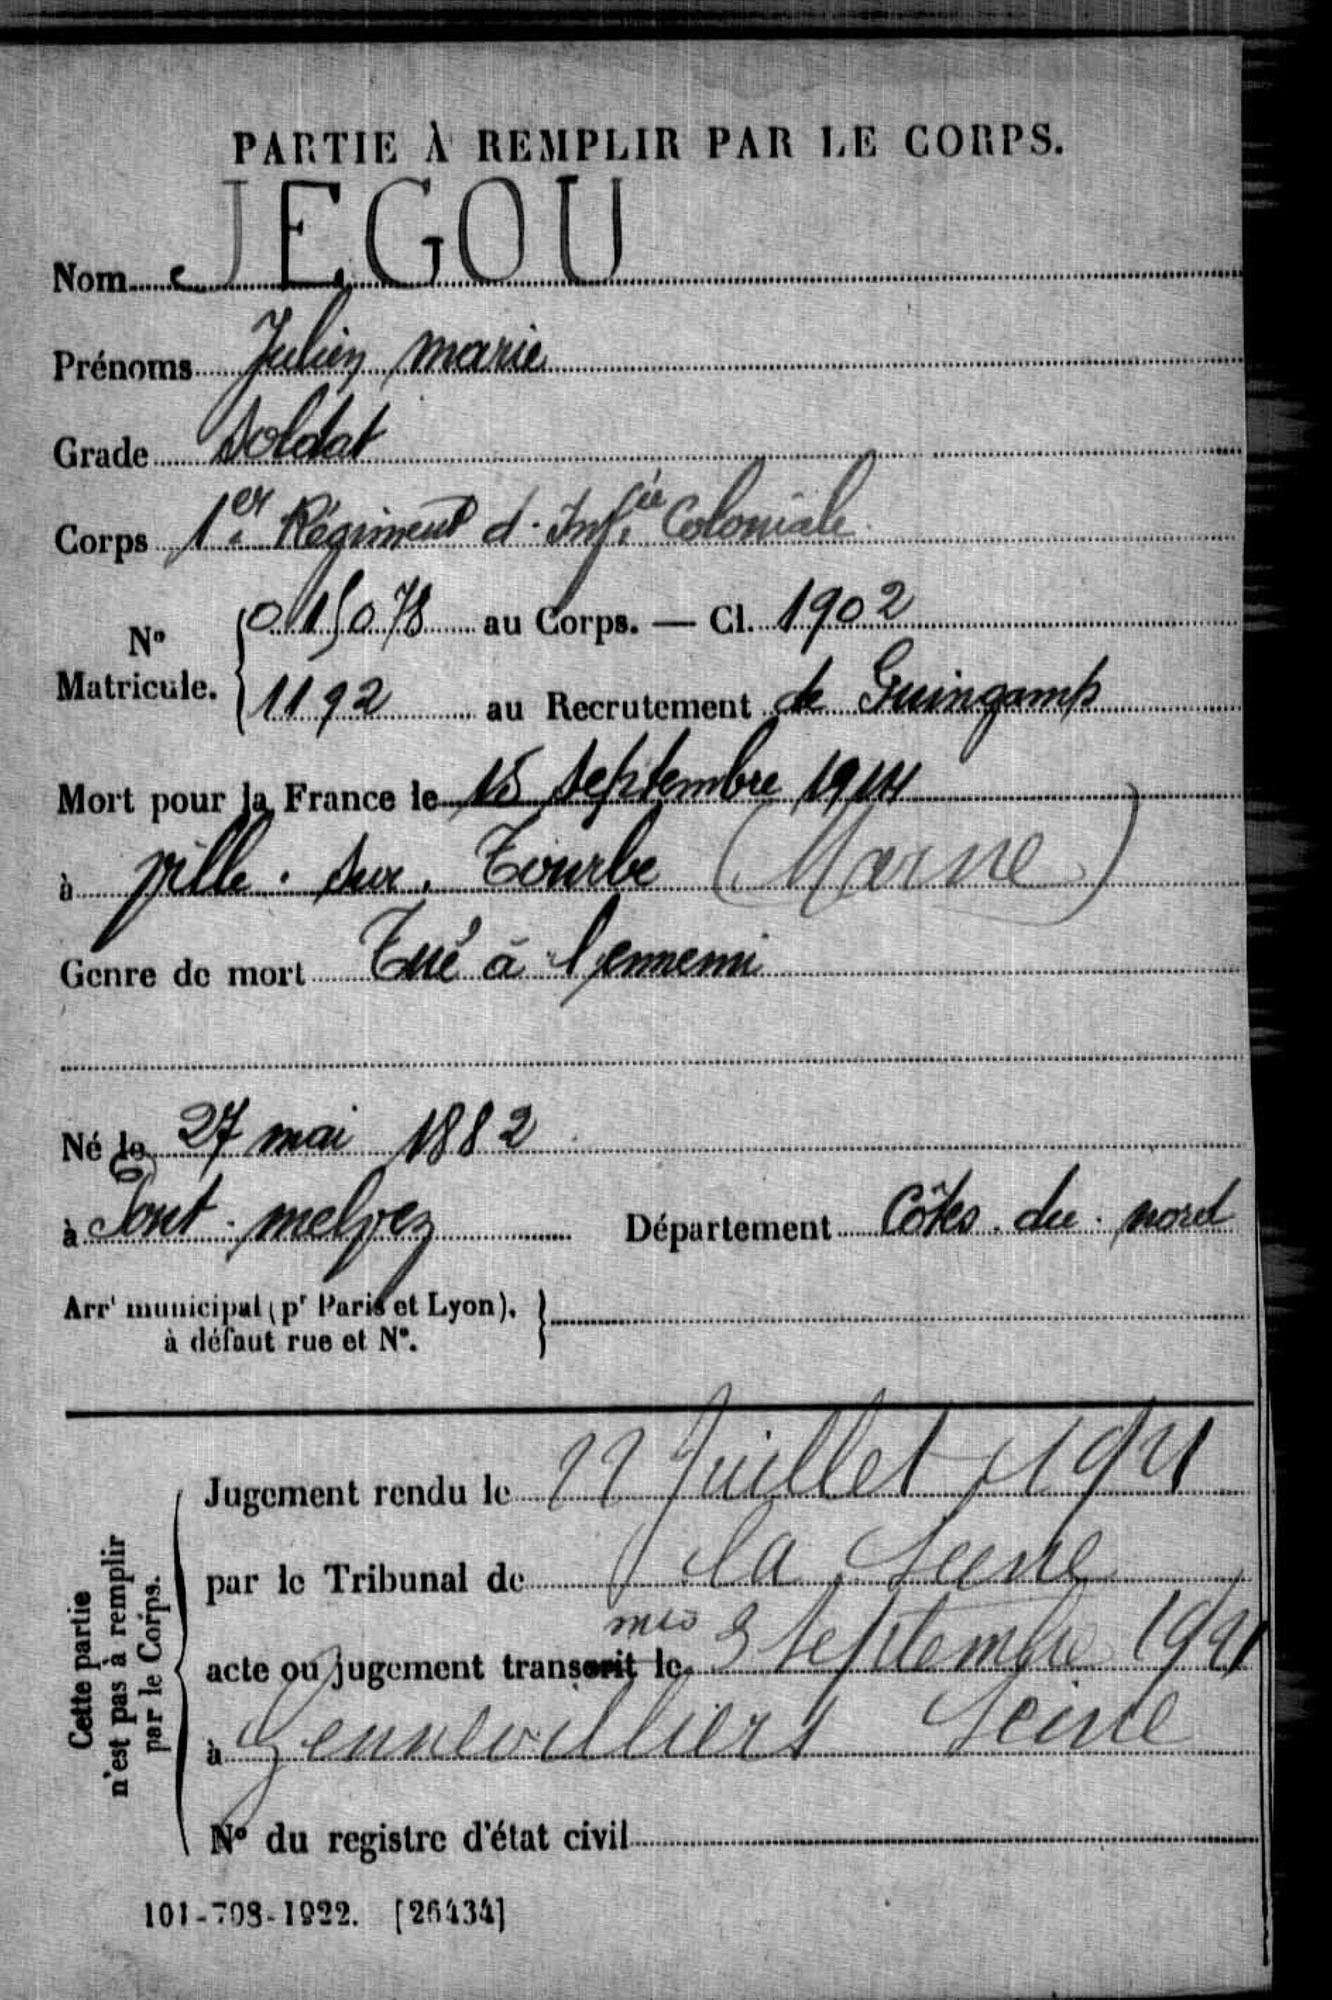 PARTIE À REMPLIR PAR LE CORPS.
Nom JEGOU
Prénoms Julien marie
Grade Soldat
Corps 1er Régiment d'Infie Coloniale
No Matricule. 015078 au Corps. — Cl. 1902
1192 au Recrutement de Guingamp
Mort pour la France le 15 septembre 1914
à ville. sur. Tourbe (Marne)
Genre de mort Tué à l'ennemi
Né le 27 mai 1882
à Pont. melvez Département Côtes. du. nord
Arrt municipal (pr Paris et Lyon), à défaut rue et No.
Cette partie n'est pas à remplir par le Corps.
Jugement rendu le 22 Juillet 1921
par le Tribunal de la Seine
acte ou jugement transcrit le mis 3 Septembre 1921
à Gennevilliers Seine
No du registre d'état civil
101-708-1922. [26434]